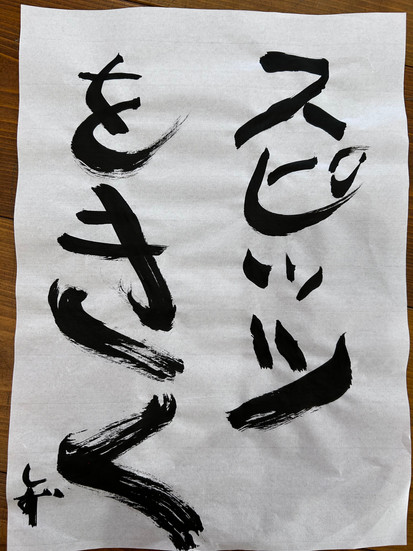 スピッツ
をきく